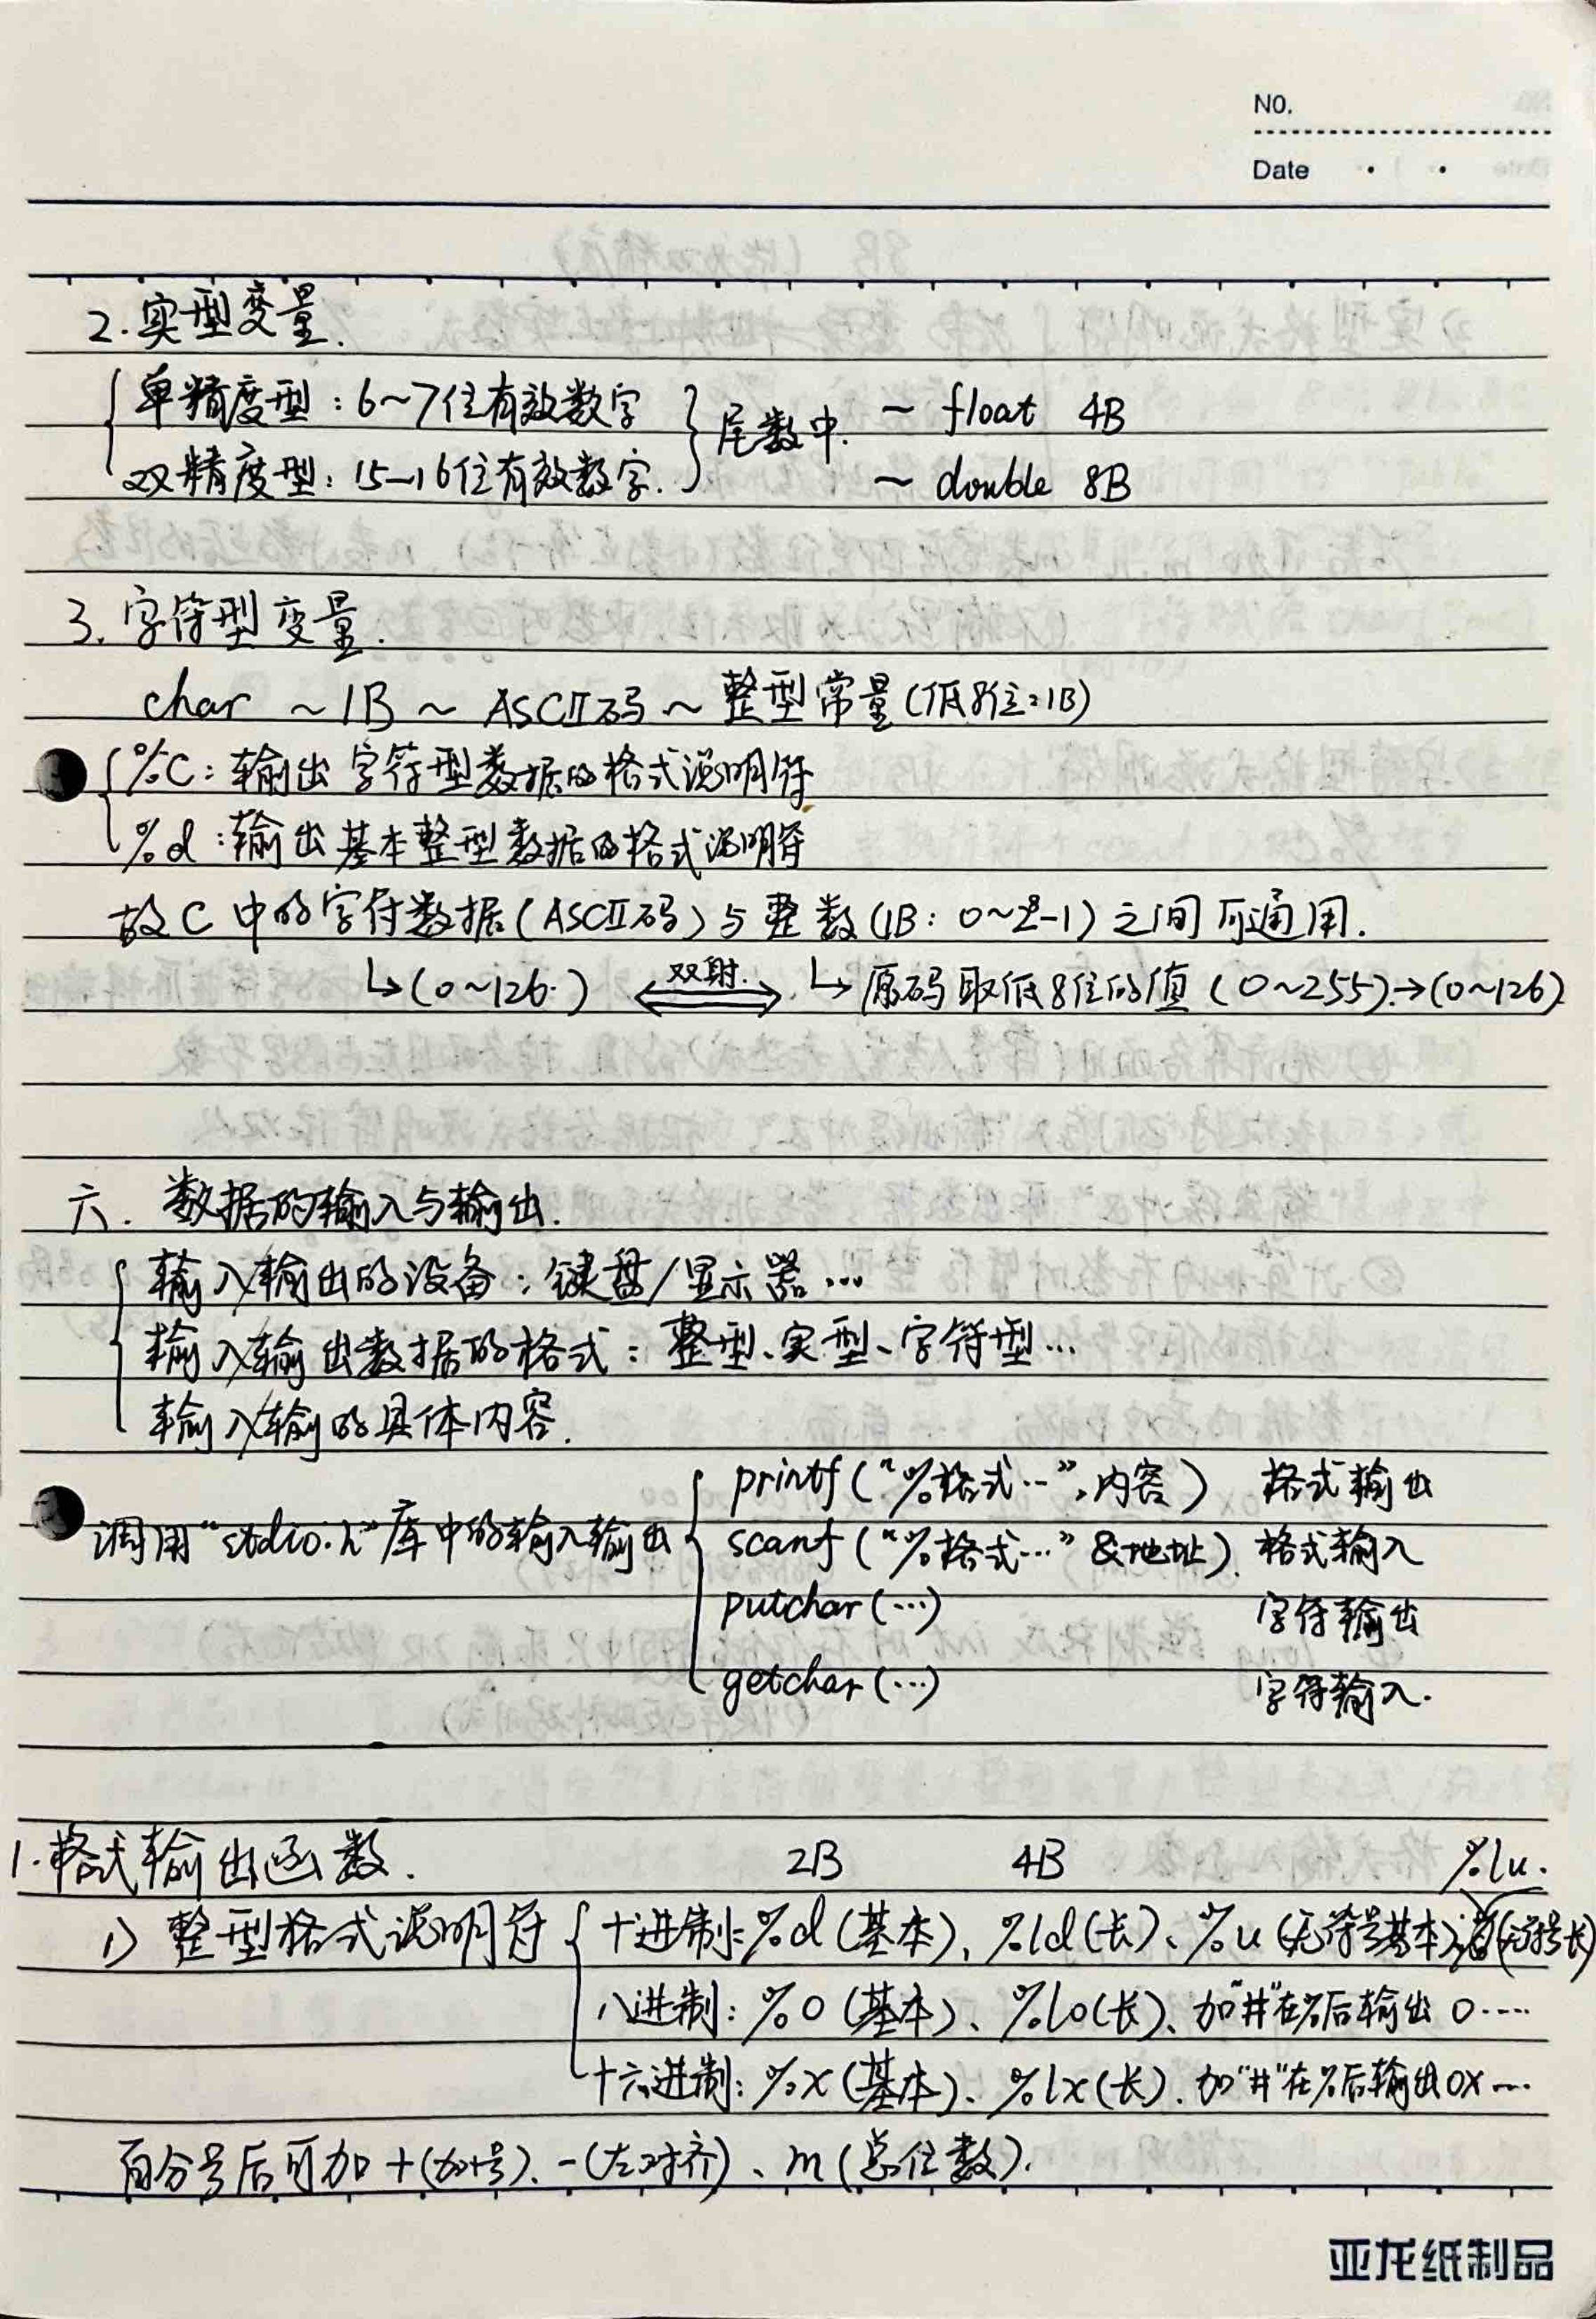 NO.
Date
2.实型变量.
单精度型:6~7位有效数字 } 尾数中. ~ float 4B
双精度型:15—16位有效数字. ~ double 8B
3.字符型变量.
char ~ 1B ~ ASCⅡ码 ~ 整型常量(低8位=1B)
%C:输出字符型数据的格式说明符
%d:输出基本整型数据的格式说明符
故C中的字符数据(ASCⅡ码)与整数(1B: 0~2⁸-1)之间可通用.
↳(0~126.) 双射. ⟺ ↳原码取低8位的值(0~255).→(0~126)
六. 数据的输入与输出.
输入/输出的设备:键盘/显示器…
输入/输出数据的格式:整型、实型、字符型…
输入/输的具体内容.
调用"stdio.h"库中的输入输出
printf("%格式…",内容) 格式输出
scanf("%格式…" &地址). 格式输入
putchar(…) 字符输出
getchar(…) 字符输入.
1.格式输出函数. 2B 4B %lu.
1) 整型格式说明符 { 十进制:%d(基本)、%ld(长)、%u(无符号基本)、(无符号长)
八进制:%o(基本)、%lo(长)、加"#"在%后输出0……
十六进制:%x(基本)、%lx(长).加"#"在%后输出0x…
百分号后可加+(加+号)、-(左对齐)、m(总位数).
亚龙纸制品